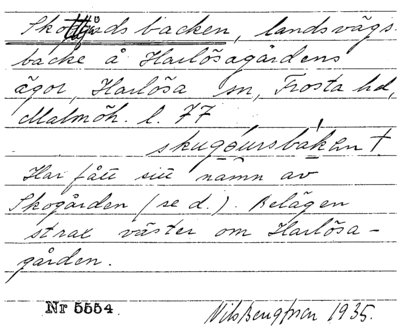 Skogårdsbacken, landsvägs-
backe å Harlösagårdens
ägor, Harlösa sn, Frosta hd,
Malmöh. l. 77
skugöursbakan †
Har fått sitt namn av
Skogården (se d.). Belägen
strax väster om Harlösa-
gården.
Nr 5554 Nils Bengtsson 1935.